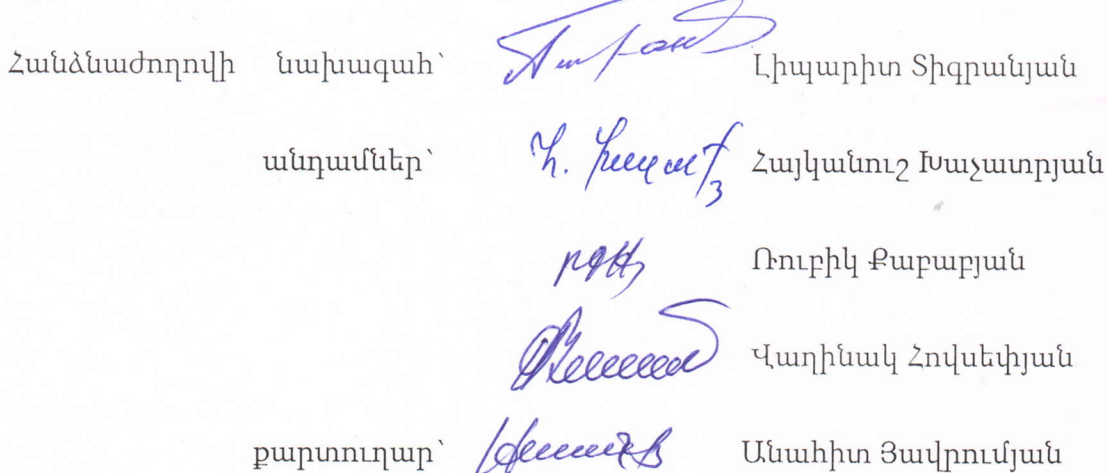 Հանձնաժողովի նախագահ՝ Լիպարիտ Տիգրանյան
անդամներ՝ Հայկանուշ Խաչատրյան
Ռուբիկ Քաբաբյան
Վաղինակ Հովսեփյան
քարտուղար՝ Անահիտ Յավրումյան